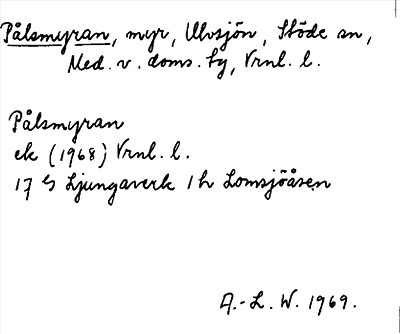 Pålsmyran, myr, Ulvsjön, Stöde sn,
Med. v. doms. fg, Vrnl. l.
Pålsmyran
ek (1968) Vrnl. l.
17 G Ljungaverk 1 h Lomsjöåsen
A.-L. W. 1969.